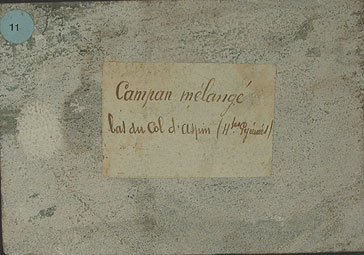 11
Campan mélangé
bas du Col d'Aspin (Htes Pyrénées)